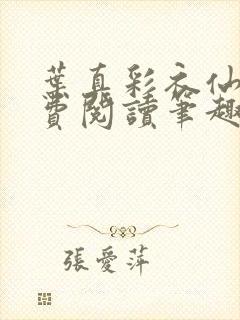 葉真彩衣仙
費閱讀筆趣
張愛萍